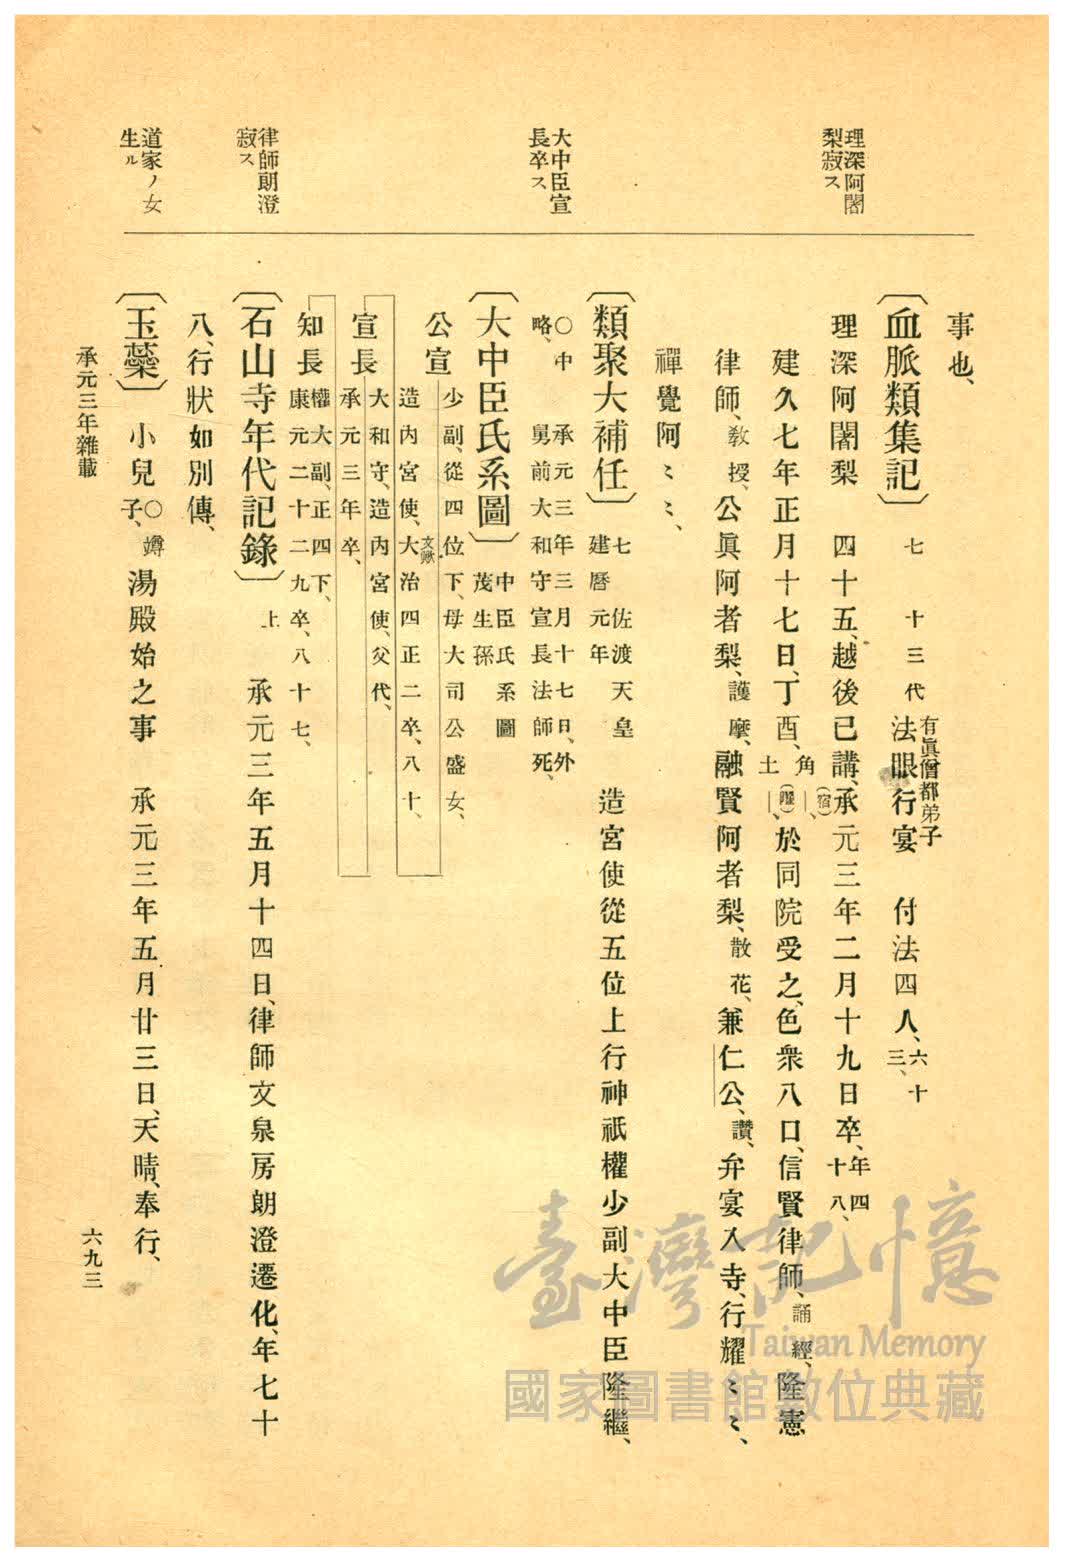 理深阿闍
梨寂ス
大中臣宣
長卒ス
律師朗澄
寂ス
道家ノ女
生ル
事也、
〔血脈類集記〕七 十三代 法眼行宴 有眞僧都弟子 付法四人、六十三、
理深阿闍梨 四十五、越後已講、承元三年二月十九日卒、年四十八、
建久七年正月十七日、丁酉、角(宿)土(曜)、於同院受之、色衆八口、信賢律師、誦經、隆憲
律師、敎授、公眞阿者梨、護摩、融賢阿者梨、散花、兼仁公、讚、弁宴入寺、行耀ミミ、
禪覺阿ミミ、
〔類聚大補任〕七 佐渡天皇 建曆元年 造宮使從五位上行神祇權少副大中臣隆繼、
○中略、 承元三年三月十七日、外舅前大和守宣長法師死、
〔大中臣氏系圖〕中臣氏系圖 茂生孫
公宣 少副、從四位下、母大司公盛女、
造內宮使、大治四正二卒、八十、
文歟
宣長 大和守、造內宮使、父代、
承元三年卒、
知長 權大副、正四下、
康元二十二九卒、八十七、
〔石山寺年代記錄〕上 承元三年五月十四日、律師文泉房朗澄遷化、年七十
八、行狀如別傳、
〔玉蘂〕 小兒○竴子、湯殿始之事 承元三年五月廿三日、天晴、奉行、
承元三年雜載
六九三
臺灣記憶
Taiwan Memory
國家圖書館數位典藏